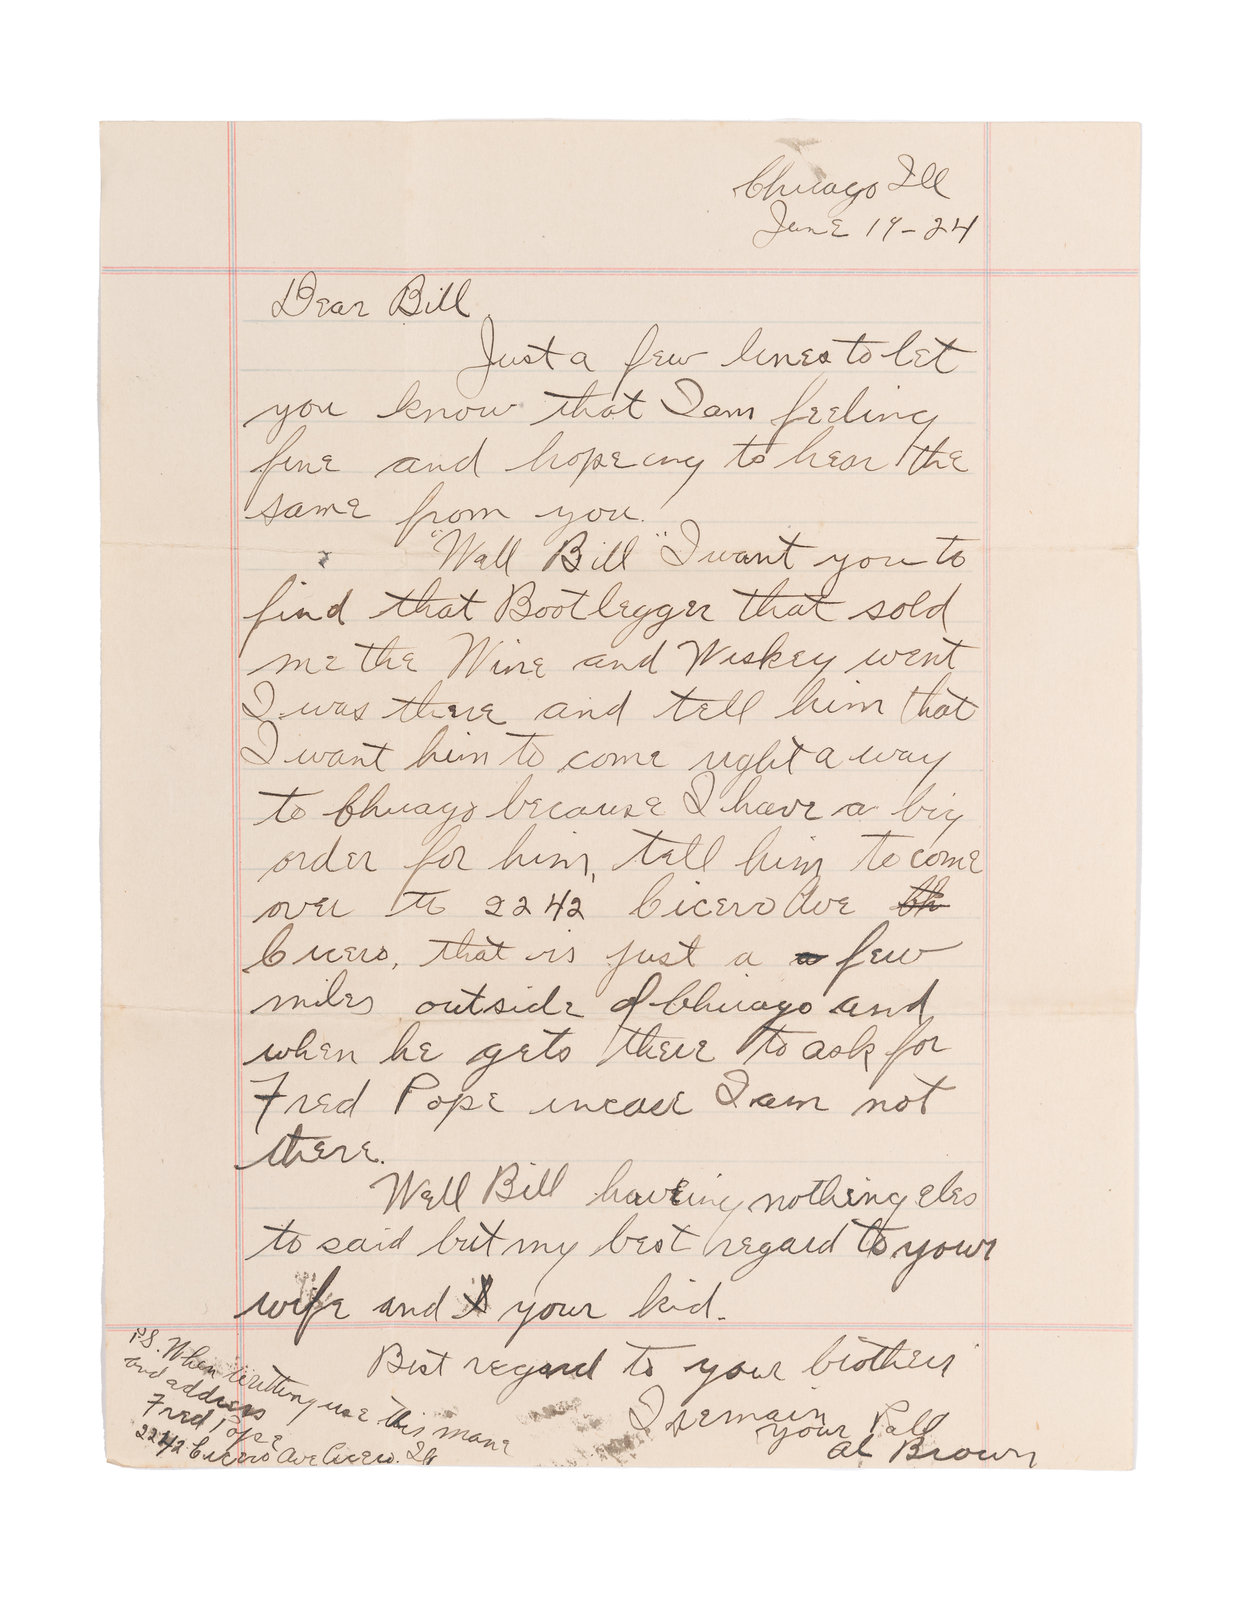 Chicago Ill
June 19-24
Dear Bill
Just a few lines to let
you know that I am feeling
fine and hopeing to hear the
same from you.
"Well Bill" I want you to
find that Bootlegger that sold
me the Wine and Wiskey went
I was there and tell him that
I want him to come right a way
to Chicago because I have a big
order for him, tell him to come
over to 2242 Cicero Ave
Cicero, that is just a few
miles outside of Chicago and
when he gets there to ask for
Fred Pope incase I am not
there.
Well Bill haveing nothing eles
to said but my best regard to your
wife and your kid.
Best regard to your brother
I remain
your Pall
Al Brown
P.S. When writting use this mane
and address
Fred Pope
2242 Cicero Ave Cicero. Ill